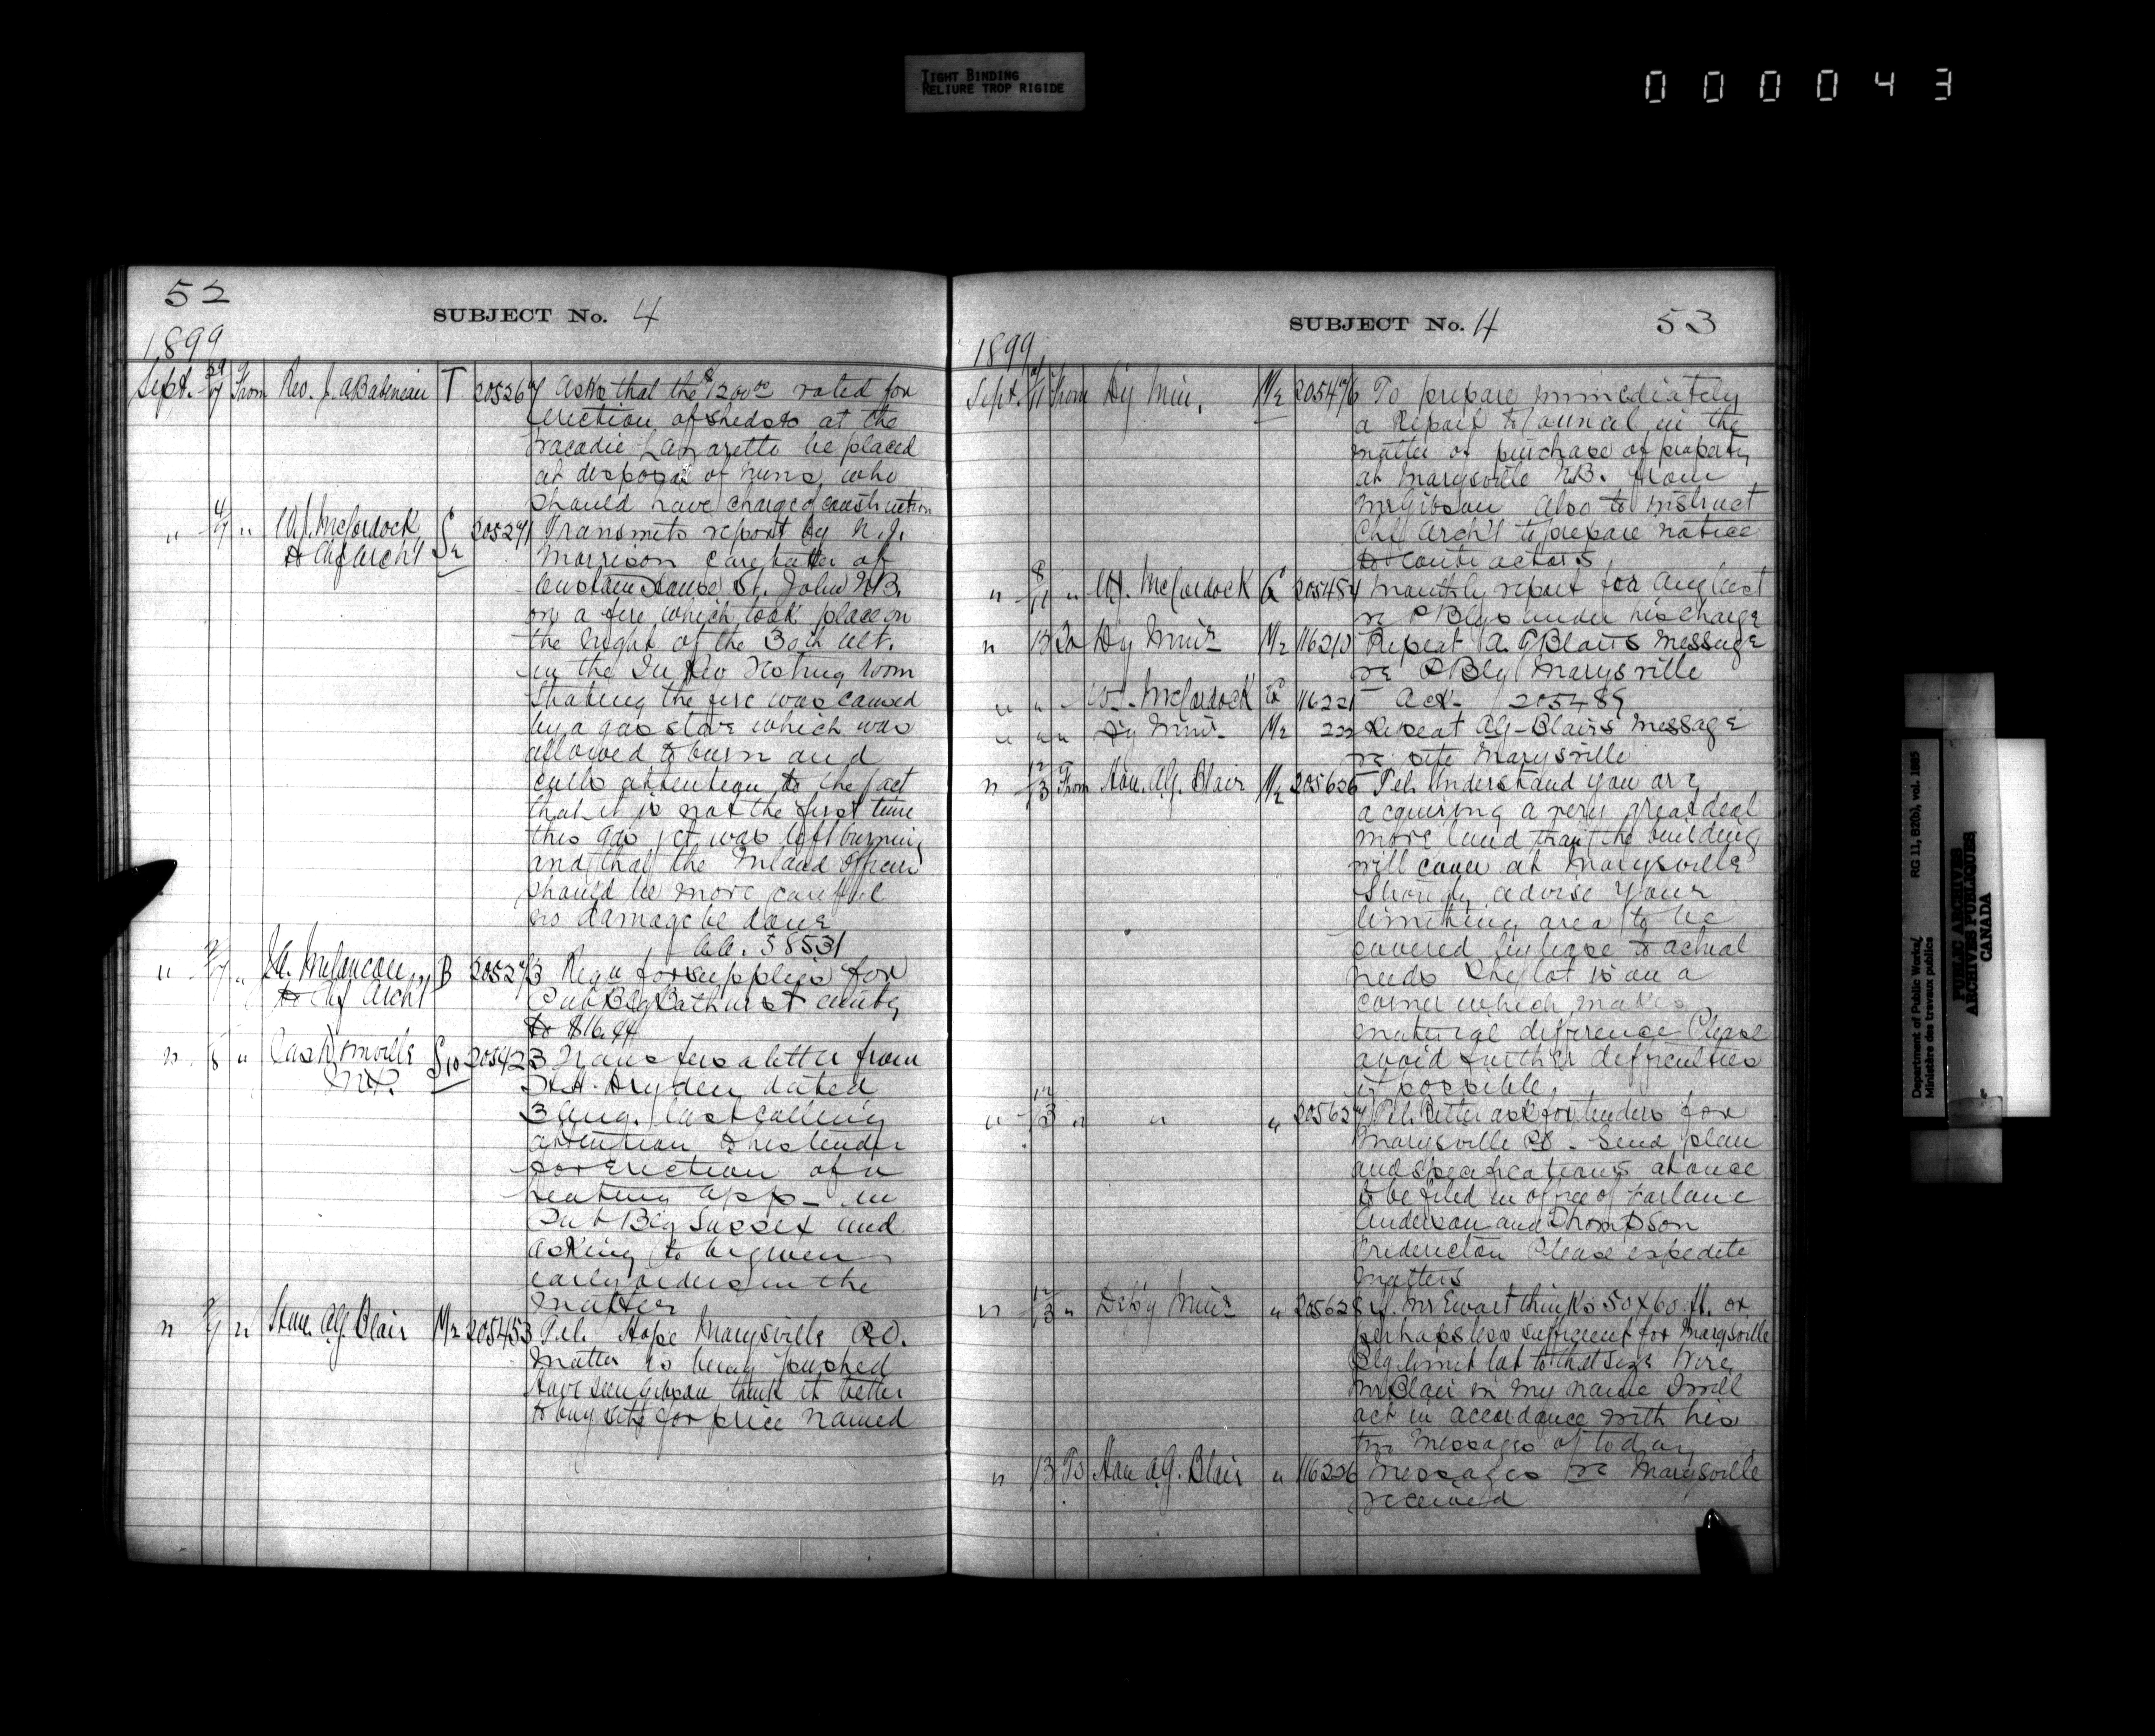 TIGHT BINDING
RELIURE TROP RIGIDE
000043
52
SUBJECT No. 4
1899
Sept. 29/7 From Rev. J. A Babineau T 205267 Asks that the $1200.00 voted for
erection of sheds at the
Tracadie Lazaretto be placed
at disposal of nuns, who
should have charge of construction
" 4/7 " W. J. McCordock S2 205271 Transmits report by N. J.
to Chf Arch't Morrison caretaker of
Custom House St. John N.B.
on a fire which took place on
the night of the 30th ult.
in the In Rev Testing room
Stating the fire was caused
by a gas stove which was
allowed to burn and
calls attention to the fact
that it is not the first time
this gas jet was left burning
and that the Inland Officers
should be more careful
no damage be done
58531
" " J. A. Melancon B 205273 Requ for supplies for
to Chf Arch't Pub Blg Bathurst amtg
to $16.94
" 8 " Domville S10 205423 Transfers a letter from
M.P. Dryden dated
3 Aug. last calling
attention to his tender
for Erection of a
heating app- in
Pub Blg Sussex and
asking to be given
early orders in the
matter
" 9/7 " Hon. A.G. Blair M2 205453 Tel. Hope Marysville P.O.
Matter is being pushed
Have seen Gibson think it better
to buy site for price named
SUBJECT No. 4
53
1899
Sept. /11 From Dy Min. M2 205476 To prepare immediately
a Report to Council in the
matter of purchase of property
at Marysville N.B. from
Mr Gibson Also to instruct
Chf Arch't to prepare notice
to contractors
" 8/11 " W. J. McCordock G 205484 Monthly report for August
re P Blgs under his charge
" 13 To Dy Minr M2 116210 Repeat A. G Blairs message
re P Blg Marysville
" " - W. J. McCordock G 116221 Ack- 205489
" " " Dy Minr- M2 222 Repeat AG-Blairs message
re site Marysville
" 12/13 From Hon. A.G. Blair M2 205626 Tel. Understand you are
acquiring a very great deal
more land than the building
will cover at Marysville
Strongly advise your
limiting area to be
covered by lease to actual
needs The lot is on a
corner which makes
material difference Please
avoid further difficulties
if possible.
" 12/13 " " " 205627 Tel. Better ask for tenders for
Marysville PO - Send plan
and specifications at once
to be filed in office of Farlane
Anderson and Thompson
Fredericton Please expedite
matters
" 12/13 " Dep'y Minr " 205628 If Mr Ewart thinks 50 x 60 ft. or
perhaps less sufficient for Marysville
Blg limit lot to that size Wire
Mr Blair in my name I will
act in accordance with his
two messages of today
" 13 To Hon A.G. Blair " 116226 Messages re Marysville
received
Department of Public Works/ RG 11, B2(b), vol. 1885
Ministère des travaux publics
PUBLIC ARCHIVES
ARCHIVES PUBLIQUES
CANADA